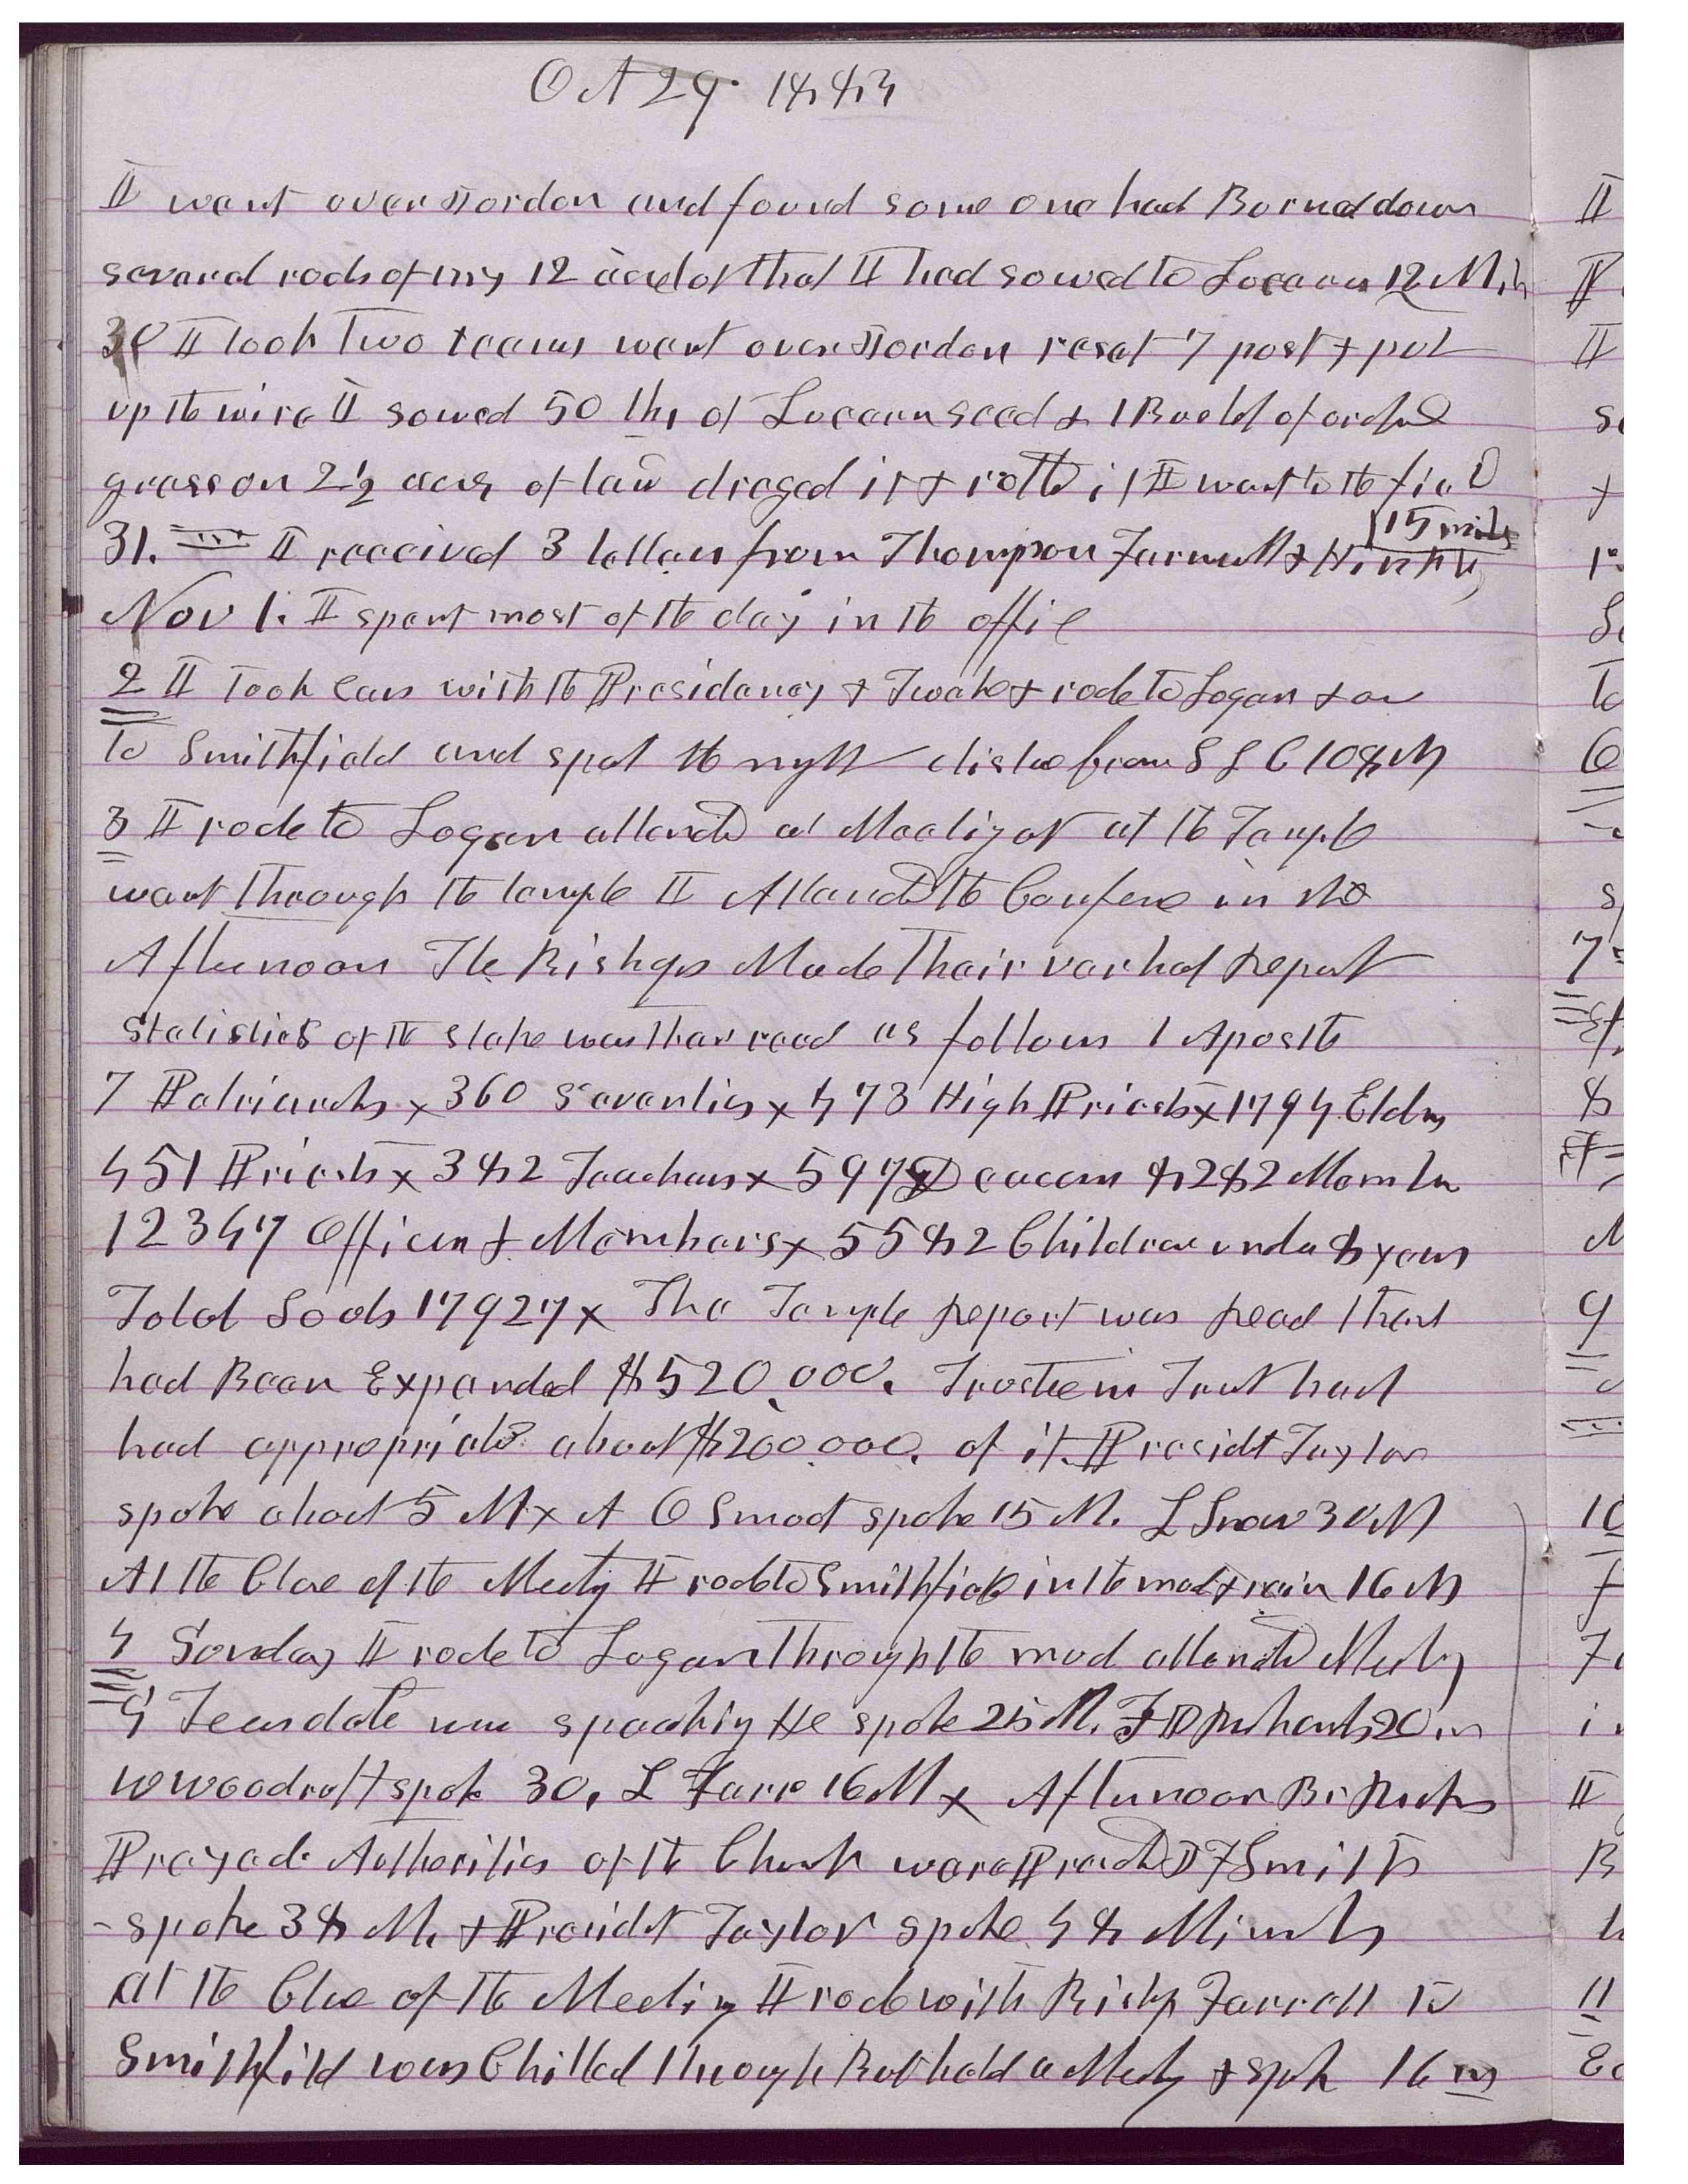 Oct 29. 1883
I went over Jordon and found some one had Burned down
several rods of my 12 acre lot that I had sowed to Lucern 12 M.
30 I took Two teams went over Jordon reset 7 post & put
up the wire I sowed 50 lbs of Lucern seed & 1 Bushel of orchard
grass on 2½ acres of land draged it & rolled it I went to the field
15 miles
31. I received 3 letters from Thompson Farnwell &
Nov 1. I spent most of the day in the office
2 I Took Cars with the Presidency & Twelve & rode to Logan & on
to Smithfield and spent the night distance from S L C 108 M
3 I rode to Logan attended a Meeting at the Temple
went Through the temple I Attended the Conference in the
Afternoon The Bishops Made Their verbal Report
Statistics of the stake was then read as follows 1 Apostle
7 Patriarchs x 360 Seventies x 473 High Priests x 1794 Elders
451 Priests x 382 Teachers x 597 Deacons 8282 Members
12347 Officers & Members x 5582 Children under 8 years
Total Souls 17927 x The Temple Report was Read their
had Been Expended $520,000. Trustee in Trust had
had appropriated about $200,000. of it. Presidt Taylor
spoke about 5 M x A O Smoot spoke 15 M. L Snow 30 M
At the Close of the Meeting I rode to Smithfield in the mud & rain 16 M
4 Sunday I rode to Logan Through the mud attended Meeting
G Teasdale was speaking He spoke 25 M. F D Richards 20 m
W Woodruff spoke 30, L Farr 16 M x Afternoon Br Ricks
Prayed. Authorities of the Church were Presented J F Smith
spoke 38 M. & Presidt Taylor spoke 48 Minuts
At the Close of the Meeting I rode with Bishop Farrell to
Smithfield was Chilled through But held a Meeting & spoke 16 m